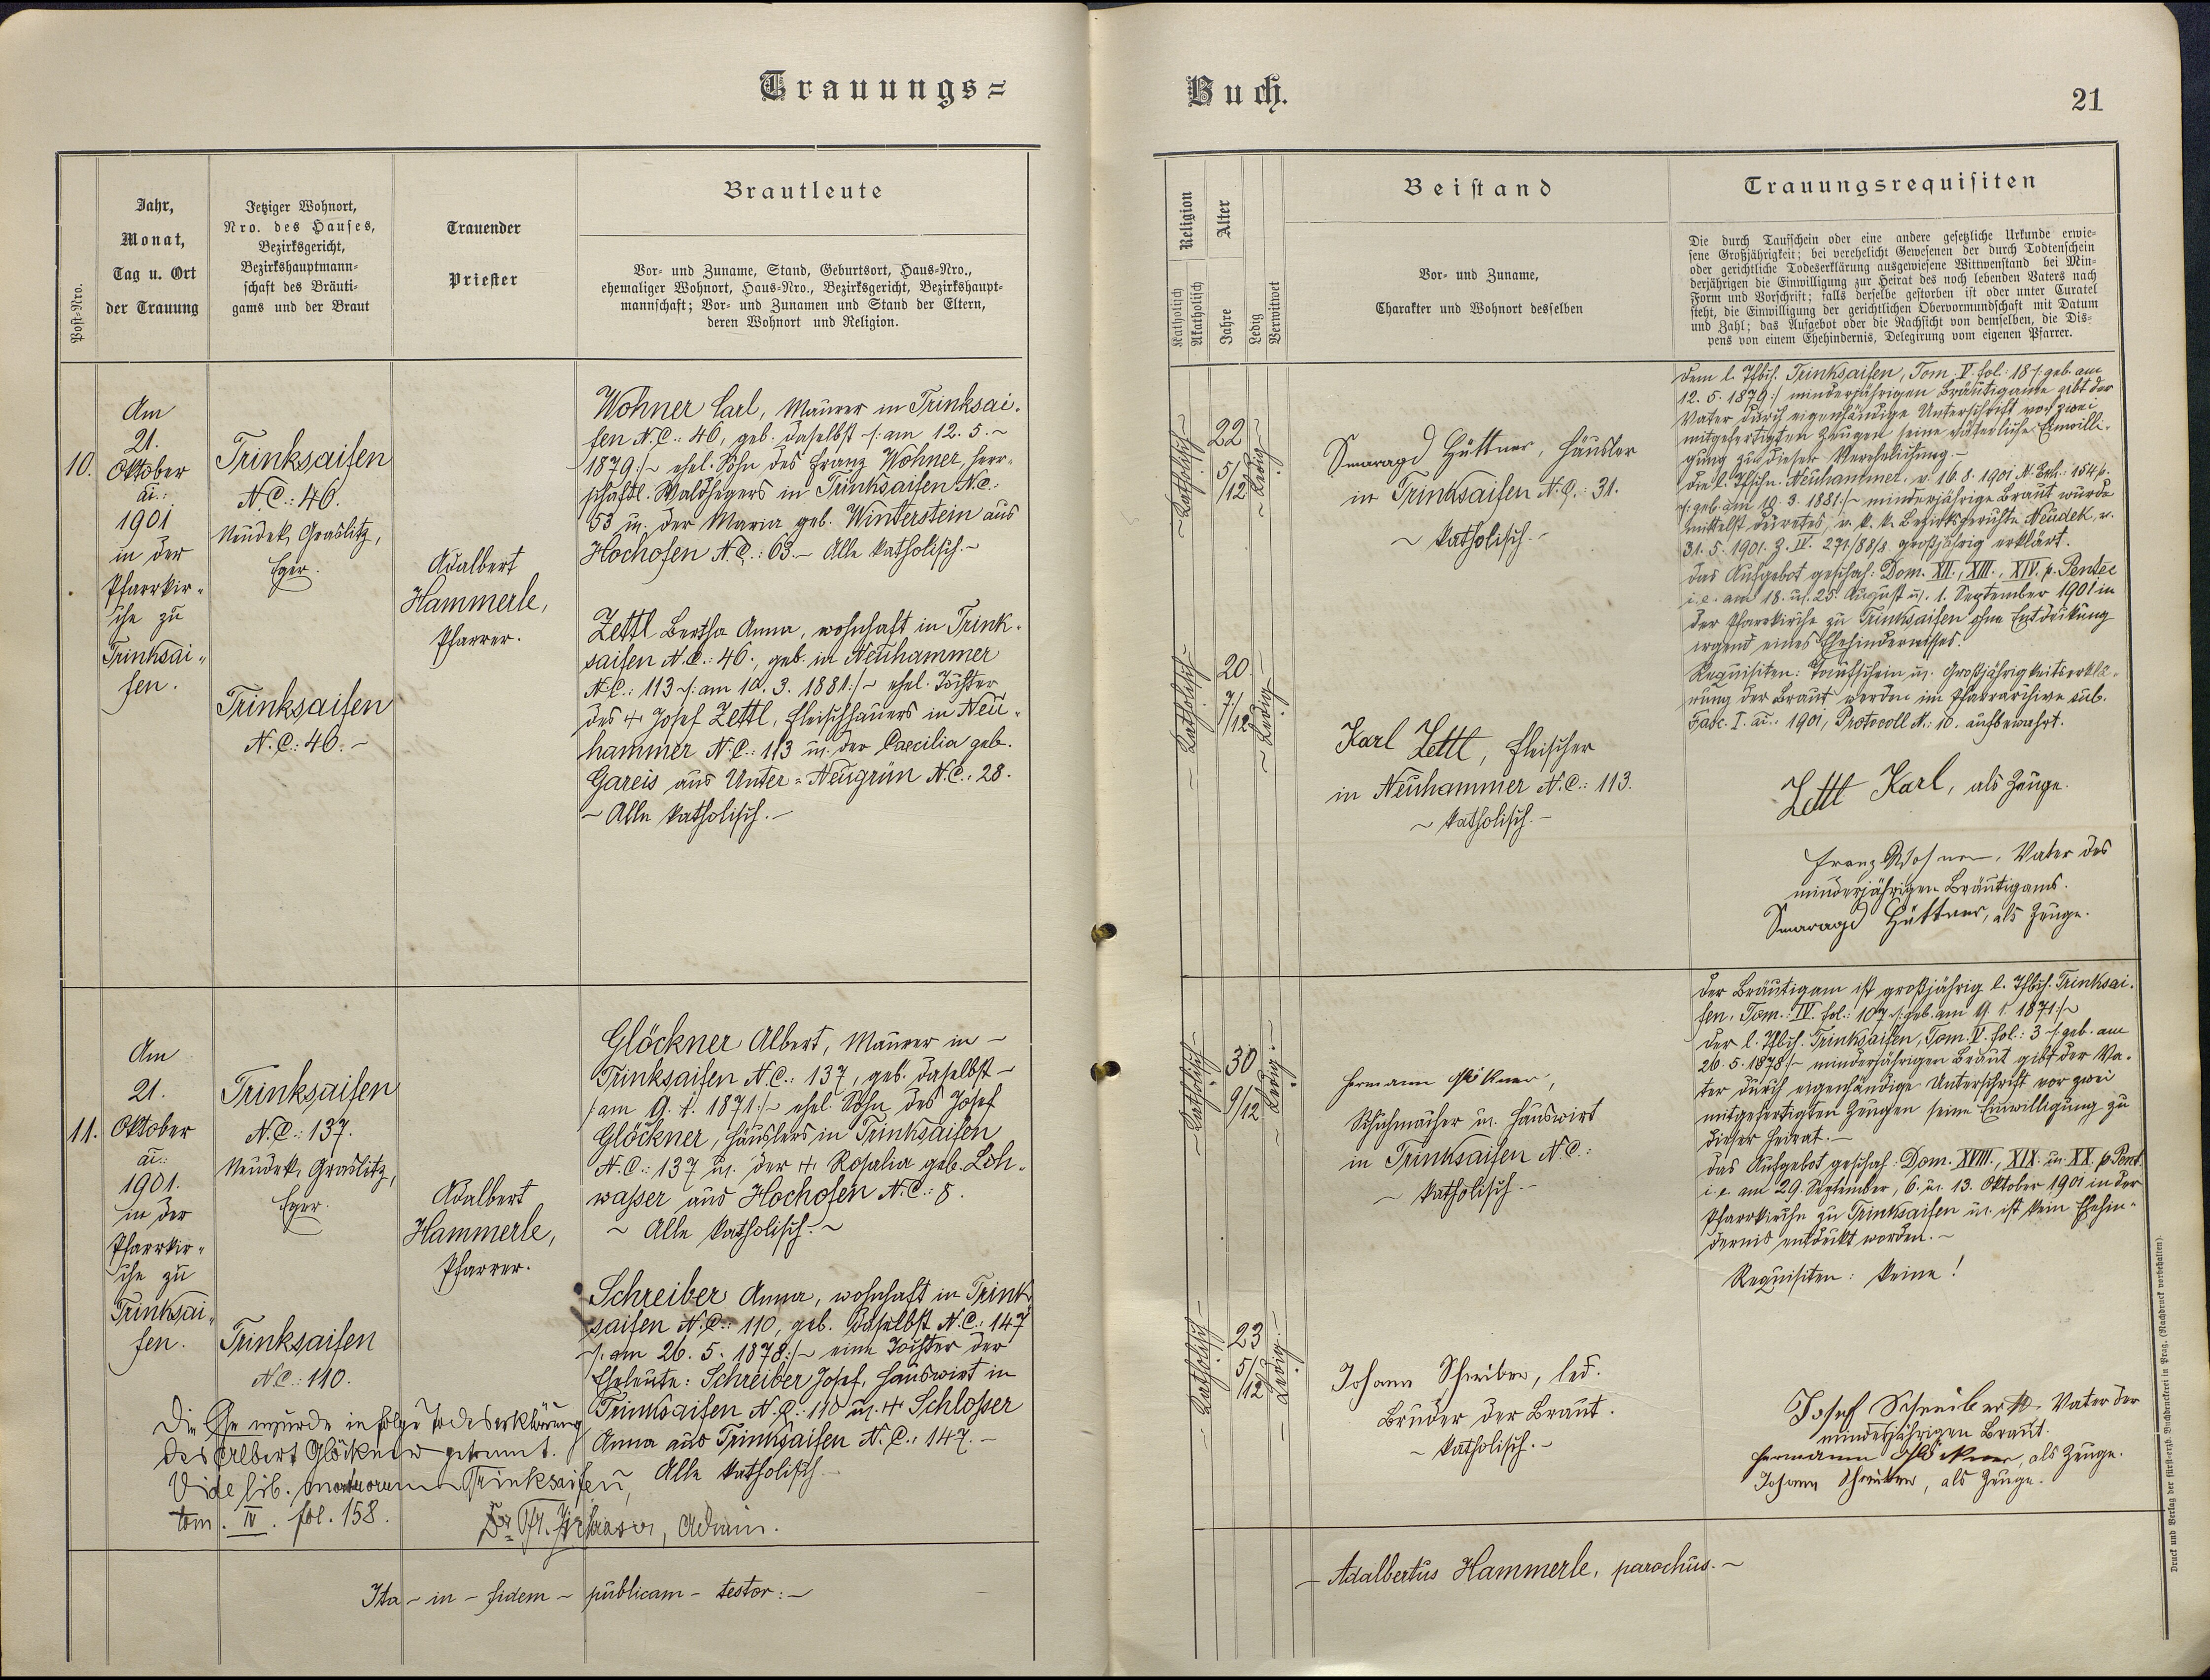 Trauungs=
Buch.
21
Post=Nro.
Jahr,
Monat,
Tag u. Ort
der Trauung
Jetziger Wohnort,
Nro. des Hauses,
Bezirksgericht,
Bezirkshauptmann=
schaft des Bräuti=
gams und der Braut
Trauender
Priester
Brautleute
Vor= und Zuname, Stand, Geburtsort, Haus=Nro.,
ehemaliger Wohnort, Haus=Nro., Bezirksgericht, Bezirkshaupt=
mannschaft; Vor= und Zunamen und Stand der Eltern,
deren Wohnort und Religion.
Religion
Katholisch
Akatholisch
Alter
Jahre
Ledig
Verwitwet
Beistand
Vor= und Zuname,
Charakter und Wohnort desselben
Trauungsrequisiten
Die durch Taufschein oder eine andere gesetzliche Urkunde erwie=
sene Großjährigkeit; bei verehelicht Gewesenen der durch Todtenschein
oder gerichtliche Todeserklärung ausgewiesene Wittwenstand bei Min=
derjährigen die Einwilligung zur Heirat des noch lebenden Vaters nach
Form und Vorschrift; falls derselbe gestorben ist oder unter Curatel
steht, die Einwilligung der gerichtlichen Obervormundschaft mit Datum
und Zahl; das Aufgebot oder die Nachsicht von demselben, die Dis=
pens von einem Ehehindernis, Delegirung vom eigenen Pfarrer.
10.
Am
21.
Oktober
ai.:
1901
in der
Pfarrkir=
che zu
Trinksai=
fen.
Trinksaifen
N.C.: 46.
Neudek, Graslitz,
Eger.
Trinksaifen
N.C.: 46.~
Adalbert
Hammerle,
Pfarrer.
Wohner Carl, Maurer in Trinksai=
fen N.C.: 46, geb. daselbst /: am 12. 5. ~
1879 :/~ ehel. Sohn des Franz Wohner, herr=
schaftl. Waldhegers in Trinksaifen N.C.:
53 u. der Maria geb. Winterstein aus
Hochofen N.C.: 63.~ Alle katholisch.~
Zettl Bertha Anna, wohnhaft in Trink=
saifen N.C.: 46., geb. in Neuhammer
N.C.: 113 /: am 10. 3. 1881 :/~ ehel. Tochter
des + Josef Zettl, Fleischhauers in Neu=
hammer N.C.: 113 u. der Caecilia geb.
Gareis aus Unter=Neugrün N.C.: 28.
~ Alle katholisch.~
~ Katholisch ~
22
5/12
~ Ledig ~
~ Katholisch ~
20.
7/12
~ Ledig ~
Smaragd Hüttner, Häusler
in Trinksaifen N.C.: 31.
~ katholisch.~
Karl Zettl, Fleischer
in Neuhammer N.C.: 113.
~ katholisch.~
Dem l. Tfbch. Trinksaifen, Tom. V. fol.: 18 /: geb. am
12. 5. 1879 :/ minderjährigen Bräutigame gibt der
Vater durch eigenhändige Unterschrift vor zwei
mitgefertigten Zeugen seine väterliche Einwilli=
gung zu dieser Verehelichung.~
Die l. Tfschn. Neuhammer v. 16. 8. 1901 N. Exh.: 154 p.
/: geb. am 10. 3. 1881 :/~ minderjährige Braut wurde
mittelst Decretes, v. k. k. Bezirksgerichte Neudek, v.
31. 5. 1901. Z. IV. 271/88/8 großjährig erklärt.
Das Aufgebot geschah: Dom. XII., XIII., XIV. p. Pentec
i. e. am 18. u. 25. August u. 1. September 1901 in
der Pfarrkirche zu Trinksaifen ohne Entdeckung
irgend eines Ehehindernisses.
Requisiten: Taufschein u. Großjährigkeitserklä=
rung der Braut werden im Pfarrarchive sub.
Fasc. I. ai.: 1901, Protocoll N.: 10. aufbewahrt.
Zettl Karl, als Zeuge.
Franz Wohner, Vater des
minderjährigen Bräutigams.
Smaragd Hüttner, als Zeuge.
11.
Am
21.
Oktober
ai.:
1901.
in der
Pfarrkir=
che zu
Trinksai=
fen.
Trinksaifen
N.C.: 137.
Neudek, Graslitz,
Eger.
Trinksaifen
N.C.: 110.
Adalbert
Hammerle,
Pfarrer.
Glöckner Albert, Maurer in ~
Trinksaifen N.C.: 137, geb. daselbst ~
/: am 9. 1. 1871 :/~ ehel. Sohn des Josef
Glöckner, Häuslers in Trinksaifen
N.C.: 137 u. der + Rosalia geb. Loh=
wasser aus Hochofen N.C.: 8.
~ Alle katholisch.~
Schreiber Anna, wohnhaft in Trink=
saifen N.C.: 110, geb. daselbst N.C.: 147
/: am 26. 5. 1878 :/~ eine Tochter der
Eheleute: Schreiber Josef, Hauswirt in
Trinksaifen N.C.: 110 u. + Schlosser
Anna aus Trinksaifen N.C.: 147.~
Alle katholisch.~
Die Ehe wurde in folge Todeserklärung
des Albert Glöckner getrennt.
Vide lib. mortuorum Trinksaifen,
tom. IV. fol. 158.
~ Katholisch ~
30
9/12
~ Ledig.~
~ Katholisch ~
23
5/12
~ Ledig.~
Hermann Glöckner,
Schuhmacher u. Hauswirt
in Trinksaifen N.C.:
~ katholisch.~
Johann Schreiber, led.
Bruder der Braut.
~ katholisch.~
Der Bräutigam ist großjährig l. Tfbch. Trinksai=
fen, Tom.: IV. fol.: 107 /: geb. am 9. 1. 1871 :/~
Der l. Tfbch. Trinksaifen, Tom. V. fol.: 3 /: geb. am
26. 5. 1878 :/~ minderjährigen Braut gibt der Va=
ter durch eigenhändige Unterschrift vor zwei
mitgefertigten Zeugen seine Einwilligung zu
dieser Heirat.~
Das Aufgebot geschah: Dom. XVIII., XIX. u. XX. p. Pent.
i. e. am 29. September, 6. u. 13. Oktober 1901 in der
Pfarrkirche zu Trinksaifen u. ist kein Ehehin=
dernis entdeckt worden.~
Requisiten: keine!
Josef Schreiber, Vater der
minderjährigen Braut.
Hermann Glöckner, als Zeuge.
Johann Schreiber, als Zeuge.
Ita ~ in ~ fidem ~ publicam ~ testor: ~
~ Adalbertus Hammerle, parochus.~
Druck und Verlag der fürst=erzb. Buchdruckerei in Prag. (Nachdruck vorbehalten).